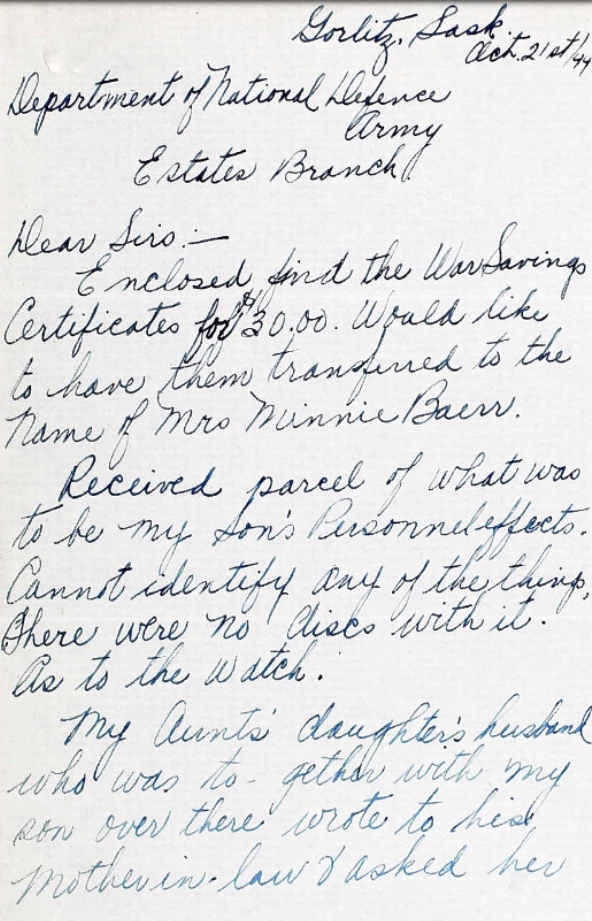 Gorlitz, Sask.
Oct. 21st/44
Department of National Defence
Army
Estates Branch.
Dear Sirs:—
Enclosed find the War Savings
Certificates for $30.00. Would like
to have them transferred to the
Name of Mrs Minnie Baerr.
Received parcel of what was
to be my Son's Personnel effects.
Cannot identify any of the things,
There were no discs with it.
As to the Watch.
My Aunts' daughter's husband
who was to-gether with my
son over there wrote to his
Mother in-law & asked her